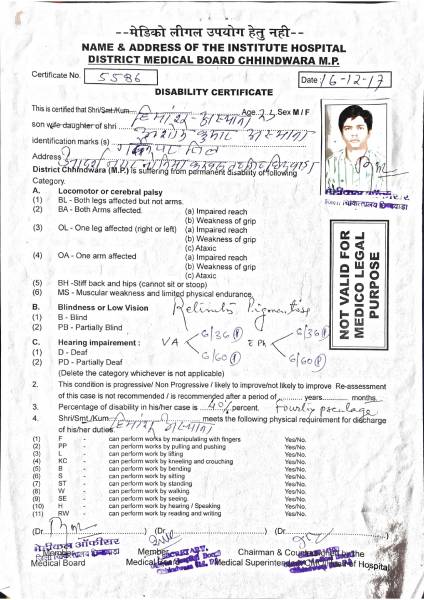 --मेडिको लीगल उपयोग हेतु नही--
NAME & ADDRESS OF THE INSTITUTE HOSPITAL
DISTRICT MEDICAL BOARD CHHINDWARA M.P.
Certificate No. 5586
Date : 16-12-17
DISABILITY CERTIFICATE
This is certified that Shri/Smt./Kum. हिमांशु अस्थाना Age. 23 Sex M / F
son wife daughter of shri कुमार अस्थाना
identification marks (s) तिल
Address
District Chhindwara (M.P.) is suffering from permanent disability of following
Category.
A. Locomotor or cerebral palsy
(1) BL - Both legs affected but not arms.
(2) BA - Both Arms affected. (a) Impaired reach
(b) Weakness of grip
(3) OL - One leg affected (right or left) (a) Impaired reach
(b) Weakness of grip
(c) Ataxic
(4) OA - One arm affected (a) Impaired reach
(b) Weakness of grip
(c) Ataxic
(5) BH -Stiff back and hips (cannot sit or stoop)
(6) MS - Muscular weakness and limited physical endurance.
NOT VALID FOR
MEDICO LEGAL
PURPOSE
B. Blindness or Low Vision
(1) B - Blind
(2) PB - Partially Blind
C. Hearing impairment :
VA 6/36 6/60 6/36 6/60
(1) D - Deaf
(2) PD - Partially Deaf
(Delete the category whichever is not applicable)
2. This condition is progressive/ Non Progressive / likely to improve/not likely to improve Re-assessment
of this case is not recommended / is recommended after a period of ........ years........ months.
3. Percentage of disability in his/her case is 40% percent.
4. Shri/Smt./Kum. हिमांशु अस्थाना meets the following physical requirement for discharge
of his/her duties.
(1) F - can perform works by manipulating with fingers Yes/No.
(2) PP - can perform work by pulling and pushing Yes/No.
(3) L - can perform works by lifting Yes/No.
(4) KC - can perform works by kneeling and crouching Yes/No.
(5) B - can perform works by bending Yes/No.
(6) S - can perform works by sitting Yes/No.
(7) ST - can perform works by standing Yes/No.
(8) W - can perform works by walking Yes/No.
(9) SE - can perform works by seeing Yes/No.
(10) H - can perform works by hearing / Speaking Yes/No.
(11) RW - can perform works by reading and writing Yes/No.
(Dr. (Dr. (Dr. )
मेडीकल ऑफीसर
Member Member Chairman & Countersigned by the
Medical Board Medical Board Medical Superintendent/CMO/Head of Hospital